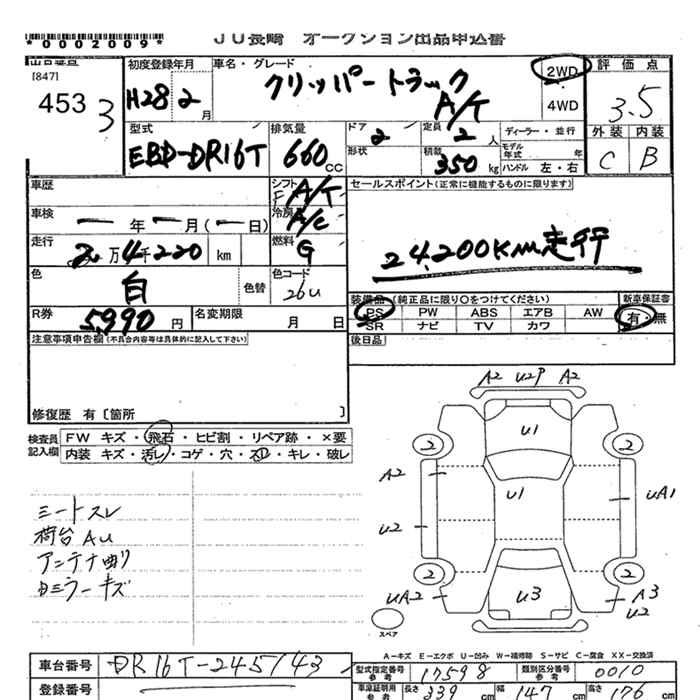 *0002009*
JU長崎 オークション出品申込書
[847]
453 3
初度登録年月
H28 2 月
車名・グレード
クリッパートラック
A/T
2WD
4WD
評価点
3.5
外装 内装
C B
型式
EBD-DR16T
排気量
660 CC
ドア
2
定員
2 人
形状
積載
350 kg
ディーラー・並行
モデル年式 年
ハンドル 左・右
車歴
シフト
F A/T
セールスポイント(正常に機能するものに限ります)
24,200KM走行
車検
一 年 一 月(一 日)
冷房
A/C
走行
2 万 4 千 220 km
燃料
G
色
白
色替
色コード
26U
R券
5,990 円
名変期限
月 日
装備品(純正品に限り○をつけてください)
PS PW ABS エアB AW
SR ナビ TV カワ
新車保証書
有・無
注意事項申告欄(不具合内容等は具体的に記入して下さい)
後日品
修復歴 有〔箇所 〕
検査員記入欄
FW キズ・飛石・ヒビ割・リペア跡・×要
内装 キズ・汚レ・コゲ・穴・スレ・キレ・破レ
シートスレ
荷台AU
アンテナ曲り
ミラーキズ
A2 U2P A2
U1
2 2
A2
U1
UA1
U2
2 2
UA2
U3
A3
U2
スペア
A-キズ E-エクボ U-凹み W-補修跡 S-サビ C-腐食 XX-交換済
車台番号
DR16T-245143
登録番号
型式指定番号
参考
17598
類別区分番号
参考
0010
車庫証明用
参考
長さ
339
幅
147
高さ
176
cm